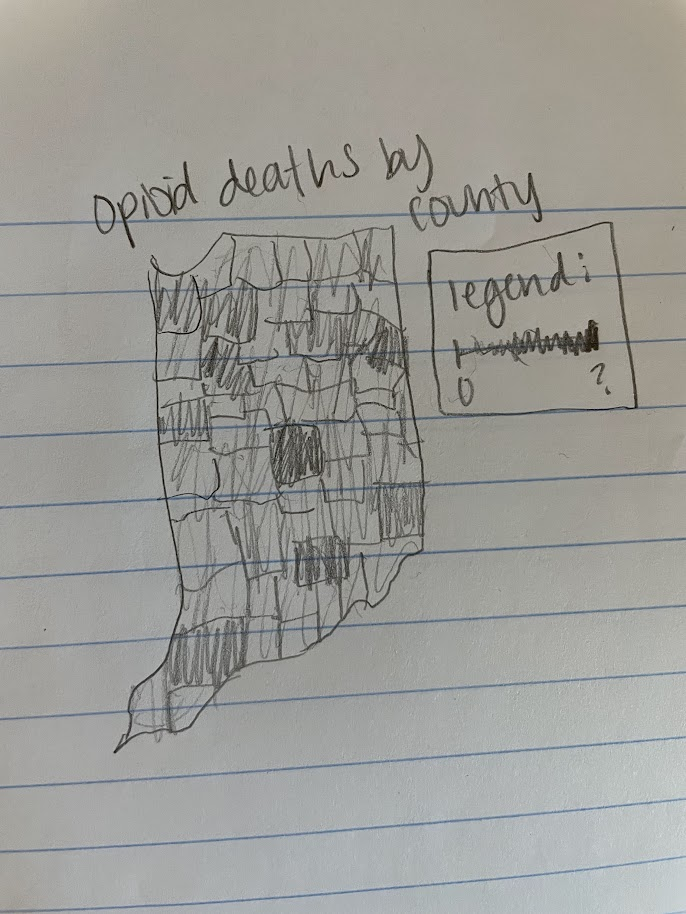 opioid deaths by
county
legend:
0 ?